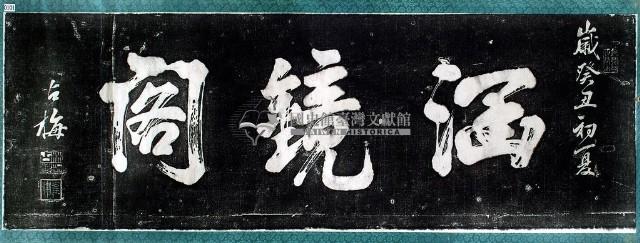 歲癸丑初夏
涵鏡閣
占梅
國史館臺灣文獻館
TAIWAN HISTORICA
0101